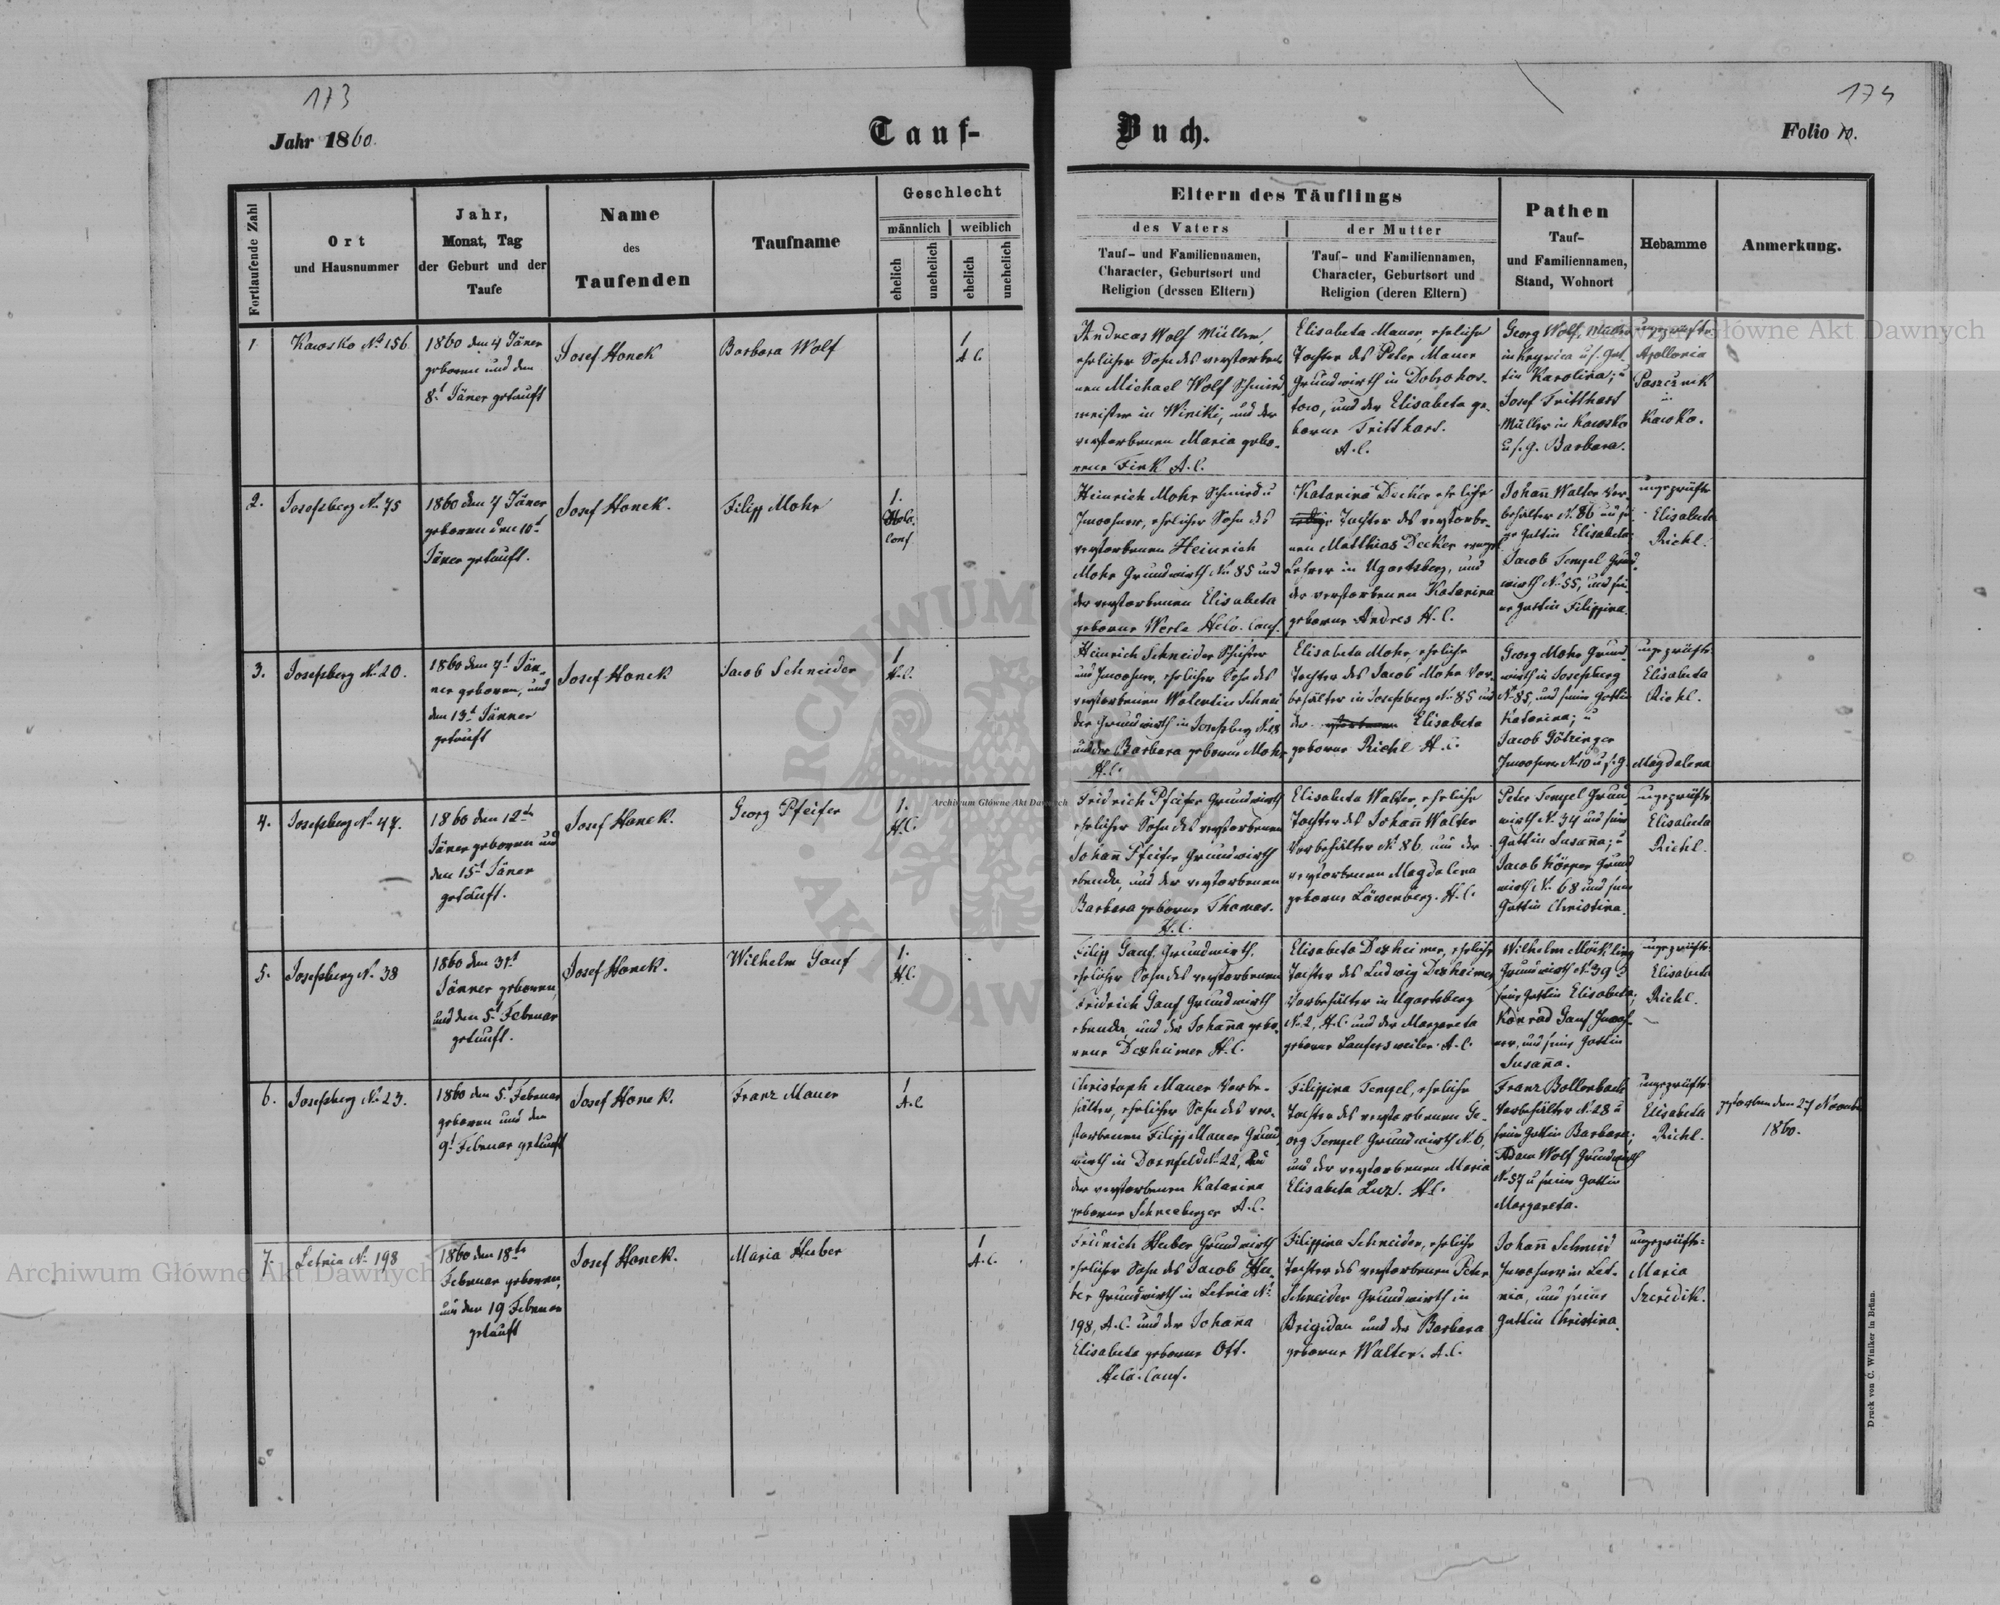 173
Jahr 1860.
Tauf-
Buch.
174
Folio 10.
Fortlaufende Zahl
Ort
und Hausnummer
Jahr,
Monat, Tag
der Geburt und der
Taufe
Name
des
Taufenden
Taufname
Geschlecht
männlich
weiblich
ehelich
unehelich
ehelich
unehelich
Eltern des Täuflings
des Vaters
Tauf- und Familiennamen,
Character, Geburtsort und
Religion (dessen Eltern)
der Mutter
Tauf- und Familiennamen,
Character, Geburtsort und
Religion (deren Eltern)
Pathen
Tauf-
und Familiennamen,
Stand, Wohnort
Hebamme
Anmerkung.
1
Kawsko No 156
1860 den 4 Jäner
geboren und den
8t Jäner getauft
Josef Honek
Barbara Wolf
1
A. C.
Andreas Wolf Müller,
ehelicher Sohn des verstorbe-
nen Michael Wolf Schmied
meister in Winiki, und der
verstorbenen Maria gebo-
rene Fink A. C.
Elisabeta Mauer, eheliche
Tochter des Peter Mauer
Grundwirth in Dobrohos-
tow, und der Elisabeta ge-
borne Tritthart.
A. C.
Georg Wolf, Müller
in u. s. Gat
tin Karolina; u
Josef Tritthart
Müller in Kawsko
u. s. g. Barbara.
ungeprüfte
Apollonia
Paszcznik
in
Kawko.
2.
Josefsberg No 75
1860 den 7 Jäner
geboren den 10t
Jäner getauft.
Josef Honek.
Filipp Mohr
1.
Helv.
Conf
Heinrich Mohr Schmied u
Inwohner, ehelicher Sohn des
verstorbenen Heinrich
Mohr Grundwirth No 85 und
der verstorbenen Elisabeta
geborne Werle Helv. Conf.
Katarina Decker eheliche
Tochter des verstorbe-
nen Matthias Decker
Lehrer in Ugartsberg, und
der verstorbenen Katarina
geborne Andres H. C.
Johann Walter Vor-
behälter No 86 und sei
ne Gattin Elisabeta;
Jacob Tempel Grund
wirth No 55, und sei-
ne Gattin Filippina.
ungeprüfte
Elisabeta
Richl.
3.
Josefsberg No 20.
1860 den 7t Jän-
ner geboren, und
den 13t Jänner
getauft
Josef Honek
Jacob Schneider
1
H. C.
Heinrich Schneider Schuster
und Inwohner, ehelicher Sohn des
verstorbenen Walentin Schnei
der Grundwirth in Josefsberg No 18
und der Barbara geborne Mohr
H. C.
Elisabeta Mohr, eheliche
Tochter des Jacob Mohr Vor-
behälter in Josefsberg No 85 und
der verstorbenen Elisabeta
geborne Richl H. C.
Georg Mohr Grund-
wirth in Josefsberg
No 85, und seine Gattin
Katarina; u
Jacob Götzinger
Inwohner No 10 u. s. g. Magdalena
ungeprüfte
Elisabeta
Richl.
4.
Josefsberg No 47.
1860 den 12ten
Jäner geboren und
den 15t Jäner
getauft.
Josef Honek.
Georg Pfeifer
1.
H. C.
Fridrich Pfeifer Grundwirth
ehelicher Sohn des verstorbenen
Johann Pfeifer Grundwirth
ebenda, und der verstorbenen
Barbara geborne Thomas.
H. C.
Elisabeta Walter, eheliche
Tochter des Johann Walter
Vorbehälter No 86 und der
verstorbenen Magdalena
geborne Löwenberg. H. C.
Peter Tempel Grund
wirth No 34 und seine
Gattin Susanna; u
Jacob Körper Grund
wirth No 68 und seine
Gattin Christina.
ungeprüfte
Elisabeta
Richl.
5.
Josefsberg No 38
1860 den 31t
Jänner geboren,
und den 5t Februar
getauft.
Josef Honek.
Wilhelm Gauf
1.
H. C.
Filipp Gauf Grundwirth.
ehelicher Sohn des verstorbenen
Fridrich Gauf Grundwirth
ebenda, und der Johanna gebo-
rene Dexheimer H. C.
Elisabeta Dexheimer, eheliche
Tochter des Ludwig Dexheimer
Vorbehälter in Ugartsberg
No 2, H. C. und der Margareta
geborne Laufersweiler. A. C.
Wilhelm Mückling
Grundwirth No 39 u
seine Gattin Elisabeta;
Konrad Gauf Inwoh-
ner, und seine Gattin
Susanna.
ungeprüfte
Elisabeta
Richl.
6.
Josefsberg No 23.
1860 den 5t Februar
geboren und den
9t Februar getauft
Josef Honek.
Franz Mauer
1
A. C.
Christoph Mauer Vorbe-
hälter, ehelicher Sohn des ver-
storbenen Filipp Mauer Grund
wirth in Dornfeld No 22, und
der verstorbenen Katarina
geborne Schneeberger A. C.
Filippina Tempel, eheliche
Tochter des verstorbenen Ge-
org Tempel Grundwirth No 6,
und der verstorbenen Maria
Elisabeta Luz. H. C.
Franz Bollenbach
Vorbehälter No 28 u
seine Gattin Barbara;
Adam Wolf Grundwirth
No 57 u seine Gattin
Margareta.
ungeprüfte
Elisabeta
Richl.
gestorben den 27 Novemb
1860.
7.
Letnia No 198
1860 den 18te
Februar geboren,
und den 19 Februar
getauft
Josef Honek.
Maria Huber
1
A. C.
Fridrich Huber Grundwirth
ehelicher Sohn des Jacob Hu-
ber Grundwirth in Letnia No
198, A. C. und der Johana
Elisabeta geborne Ott.
Helv. Conf.
Filippina Schneider, eheliche
Tochter des verstorbenen Peter
Schneider Grundwirth in
Brigidau und der Barbara
geborne Walter. A. C.
Johann Schmid
Inwohner in Let-
nia, und seine
Gattin Christina.
ungeprüfte
Maria
Szeredik.
Druck von C. Winiker in Brünn.
Archiwum Główne Akt Dawnych
Archiwum Główne Akt Dawnych
Archiwum Główne Akt Dawnych
ARCHIWUM
AKT DAW